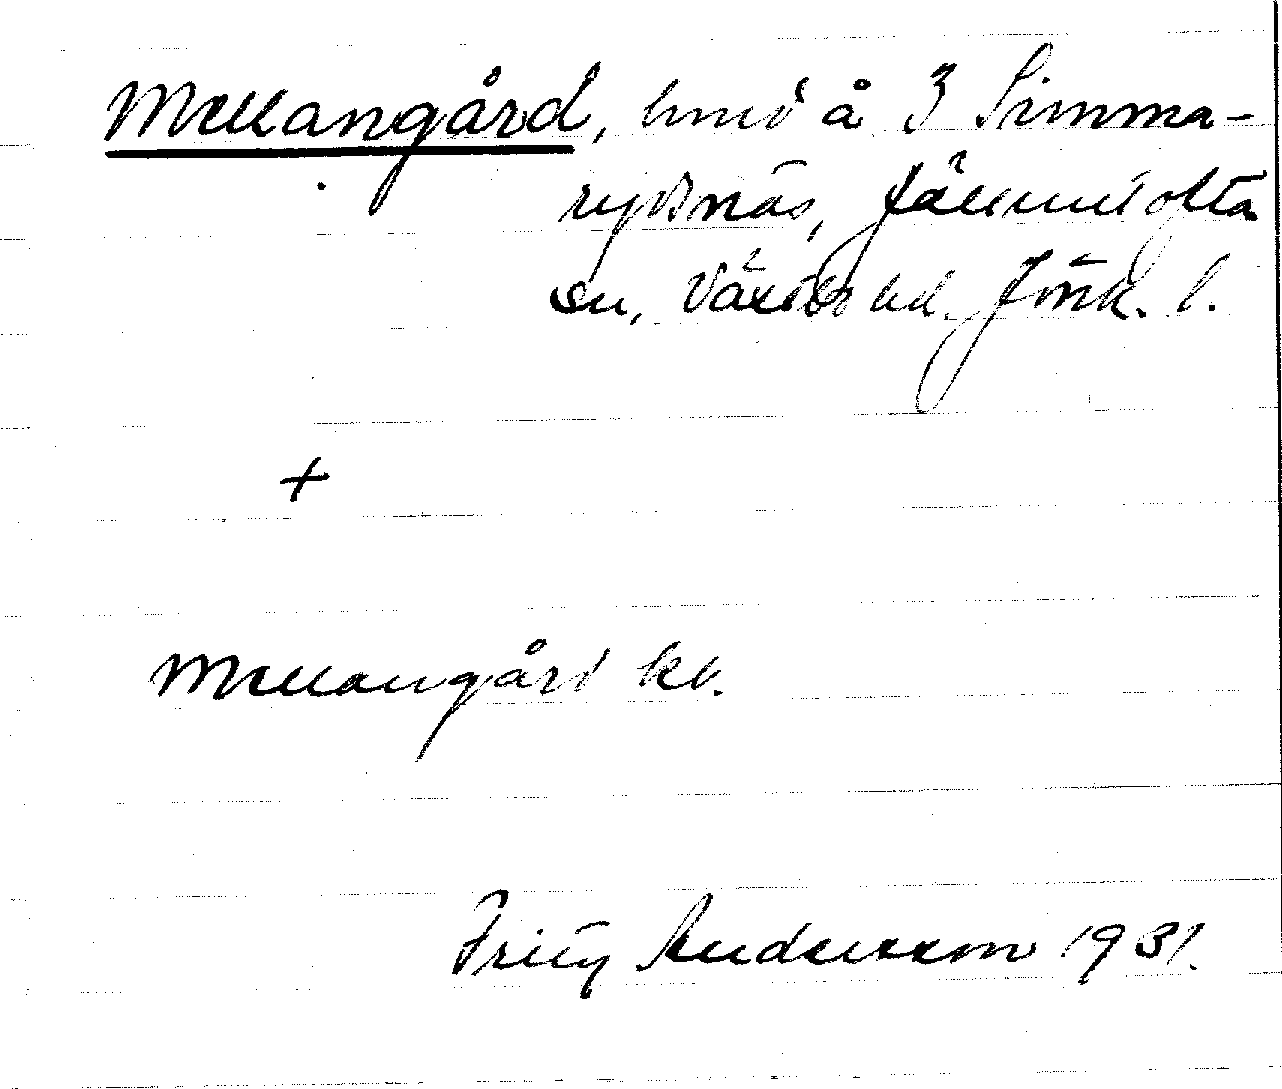 Mellangård, hmd å 3 Simma-
rydsnäs, Jälluntofta
sn, Västbo hd. Jönk. l.
+
Mellangård kb.
Fritz Andersson 1931.